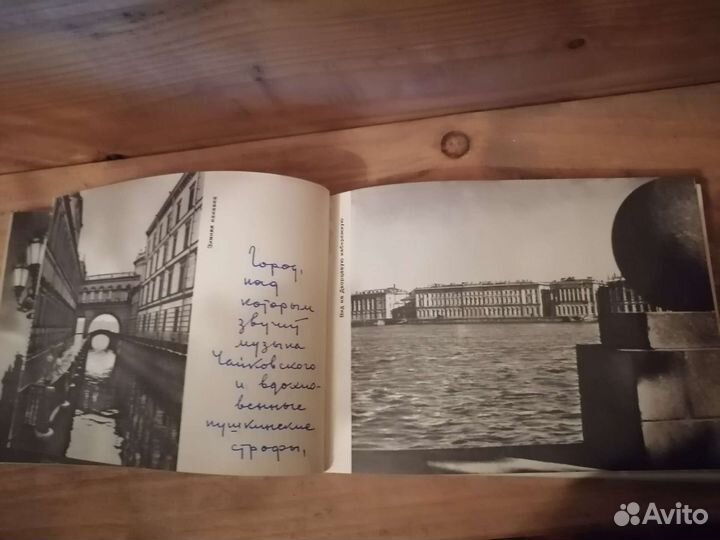 Зимняя канавка
Город,
над
которым
звучит
музыка
Чайковского
и вдохно-
венные
пушкинские
строфы,
Вид на Дворцовую набережную
Avito